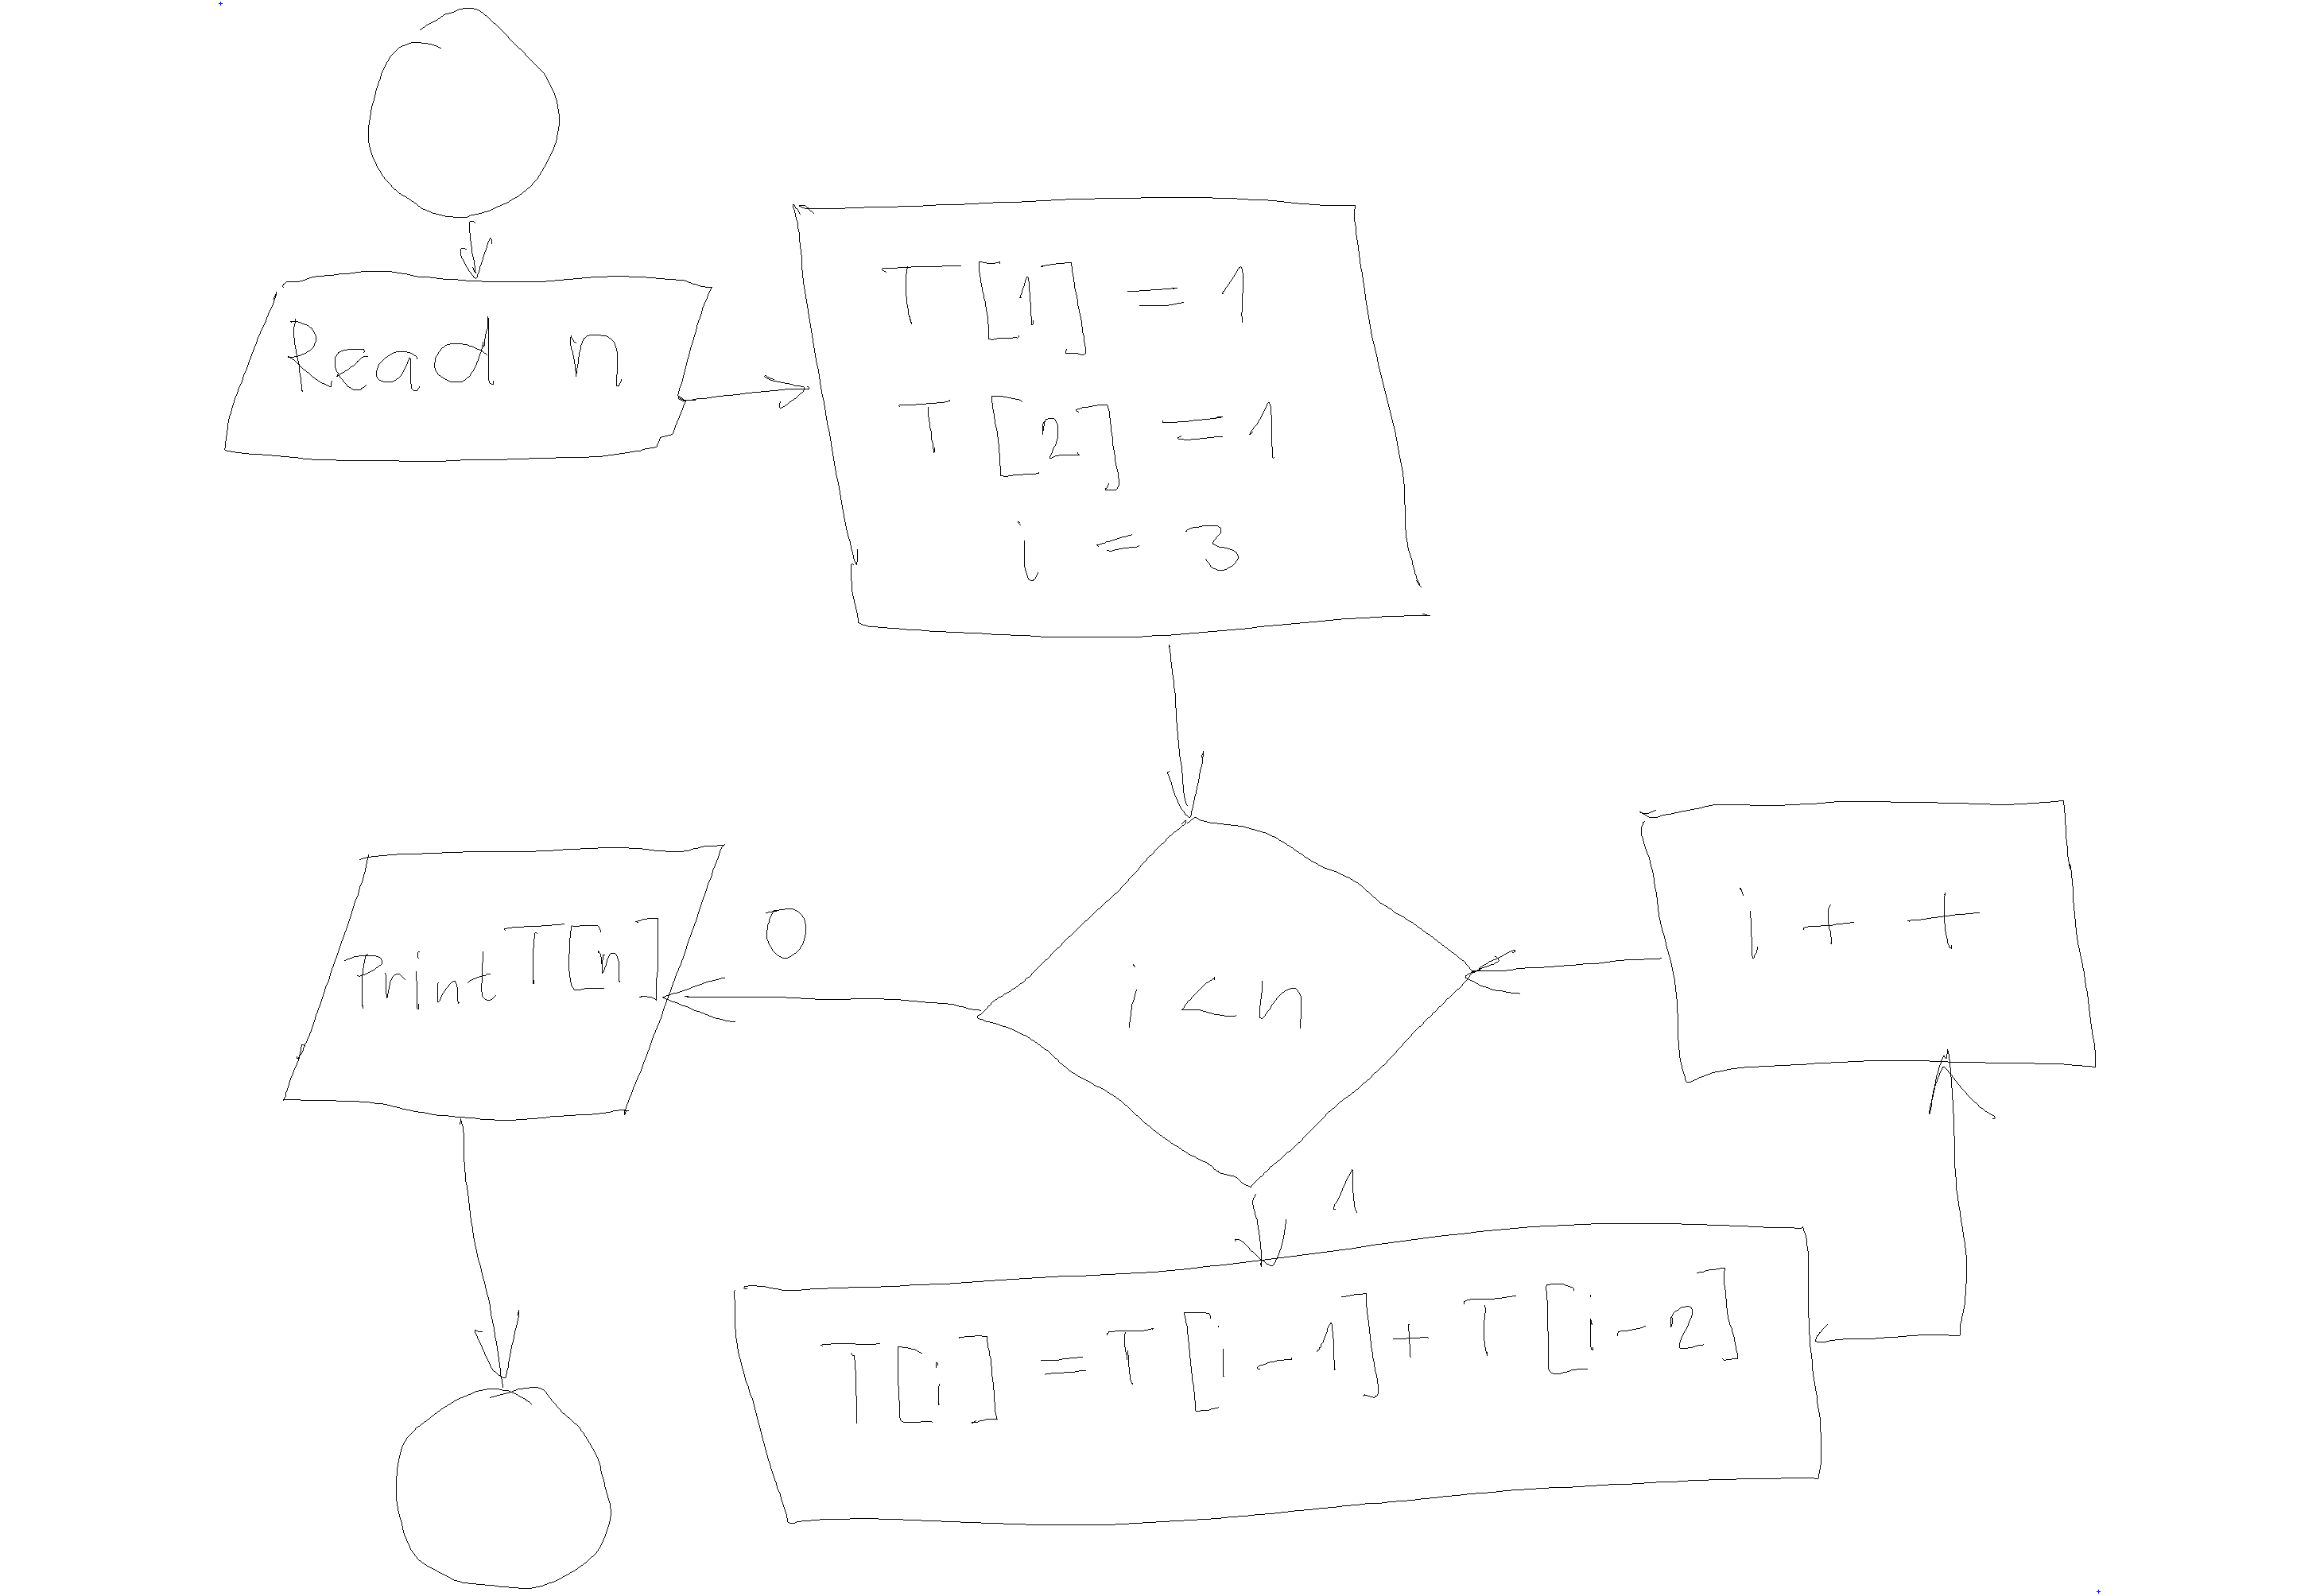 Read n
T[1] = 1
T[2] = 1
i = 3
i < n
0
Print T[n]
i + +
1
T[i] = T[i-1] + T[i-2]